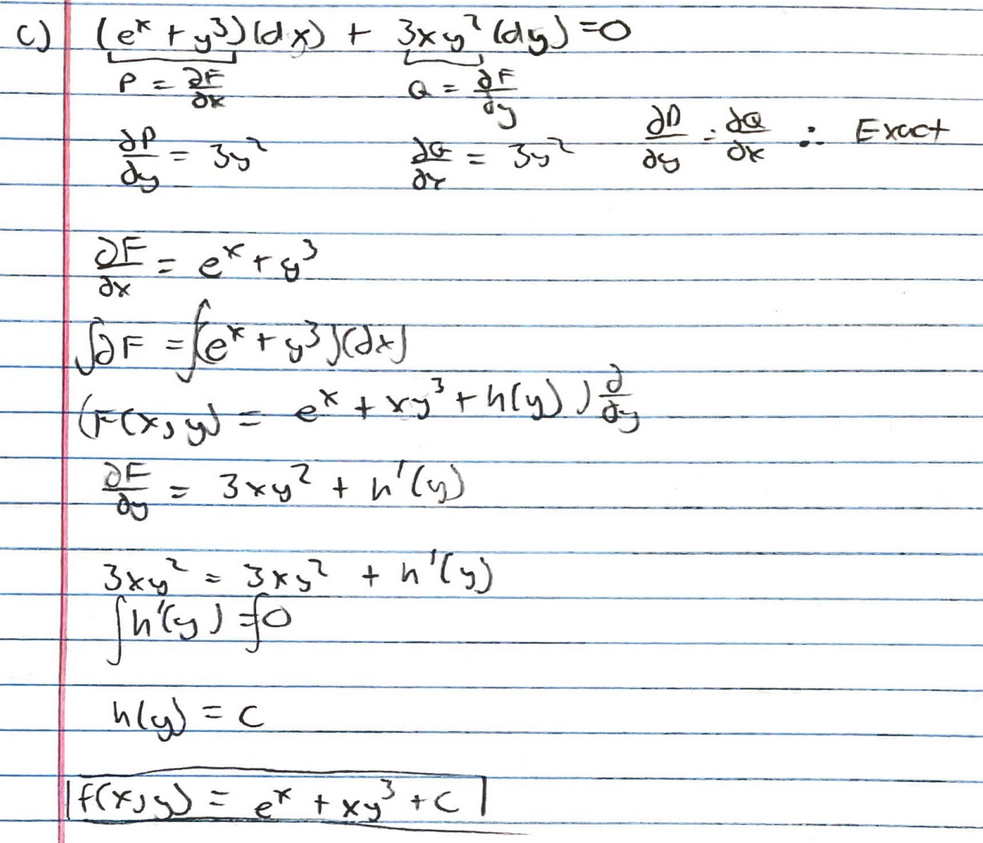 c) (eˣ + y³)(dx) + 3xy²(dy) = 0
P = ∂F/∂x Q = ∂F/∂y
∂P/∂y = 3y² ∂Q/∂x = 3y² ∂P/∂y = ∂Q/∂x ∴ Exact
∂F/∂x = eˣ + y³
∫∂F = ∫(eˣ + y³)(dx)
(F(x,y) = eˣ + xy³ + h(y)) ∂/∂y
∂F/∂y = 3xy² + h'(y)
3xy² = 3xy² + h'(y)
∫h'(y) = ∫0
h(y) = C
f(x,y) = eˣ + xy³ + C